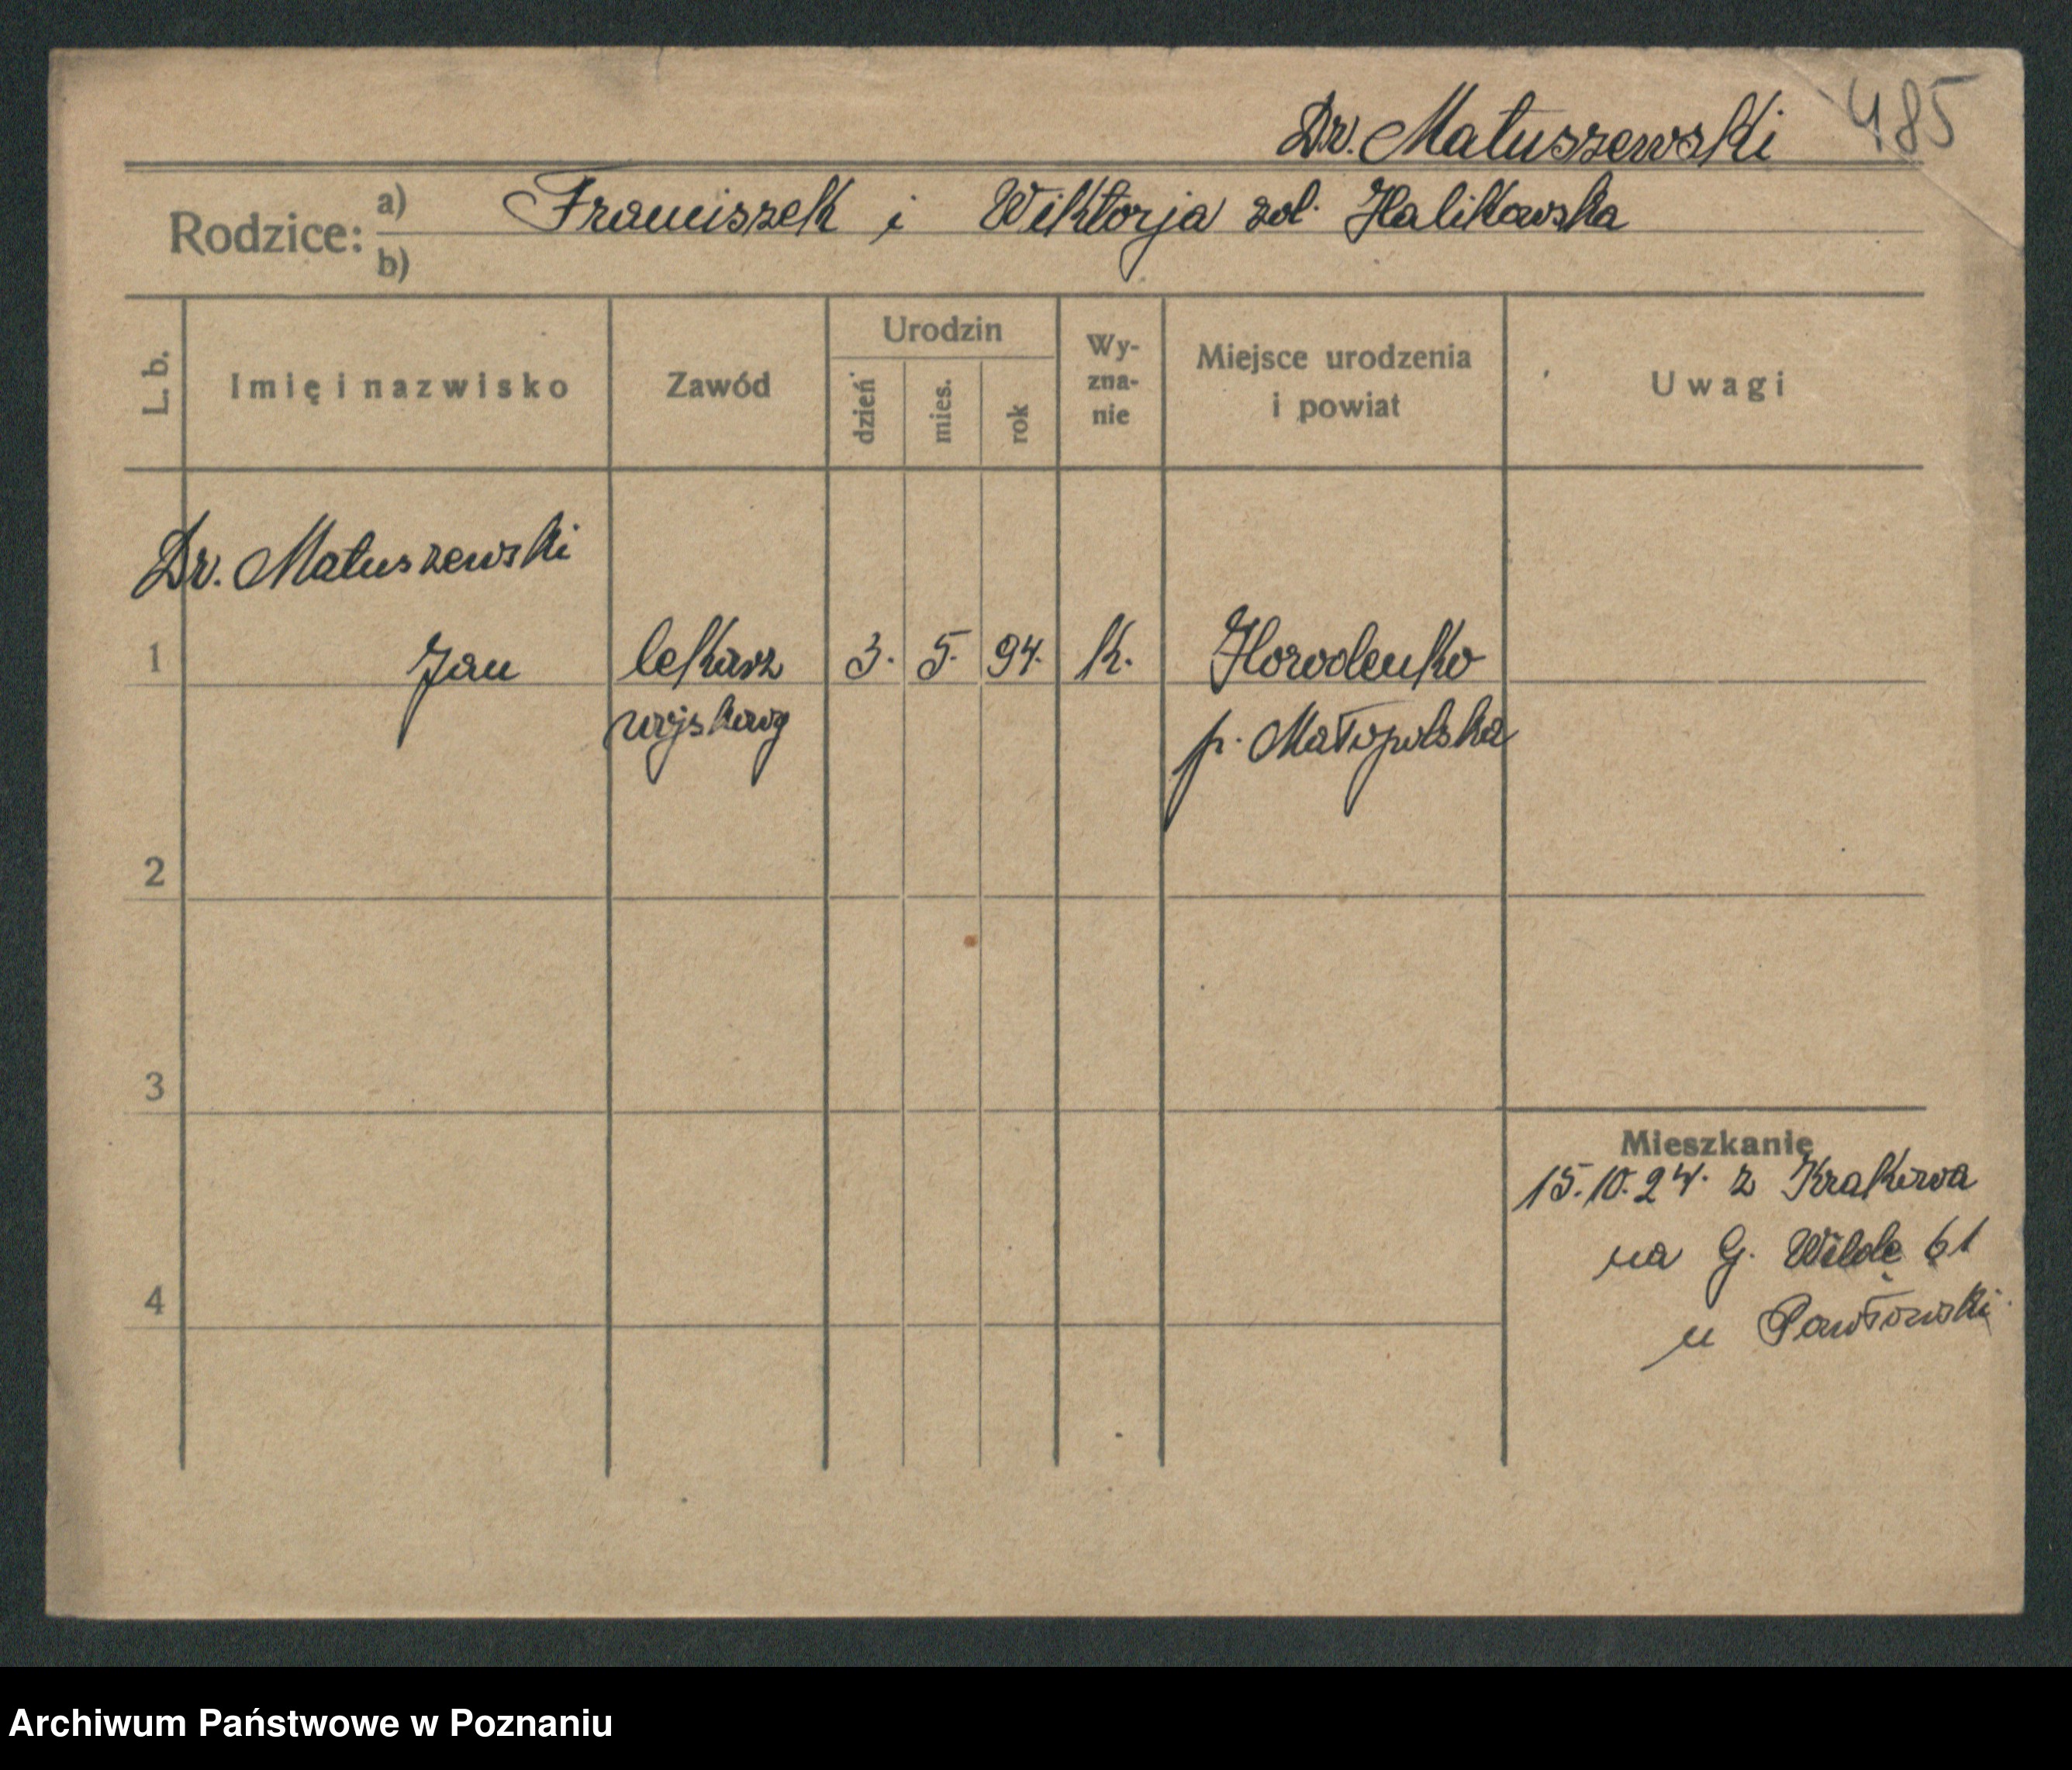 Dr. Matuszewski 485
Rodzice: a) Franciszek i Wiktorja zd. Halikowska
b)
L. b. Imię i nazwisko Zawód Urodzin dzień mies. rok Wy-zna-nie Miejsce urodzenia i powiat Uwagi
Dr. Matuszewski
1 Jan lekarz 3. 5. 94. k. Horodenko
wojskowy p. Małopolska
2
3
Mieszkanie
15.10.24. z Krakowa
na G. Wildę 61
4
u Pawłowski
Archiwum Państwowe w Poznaniu